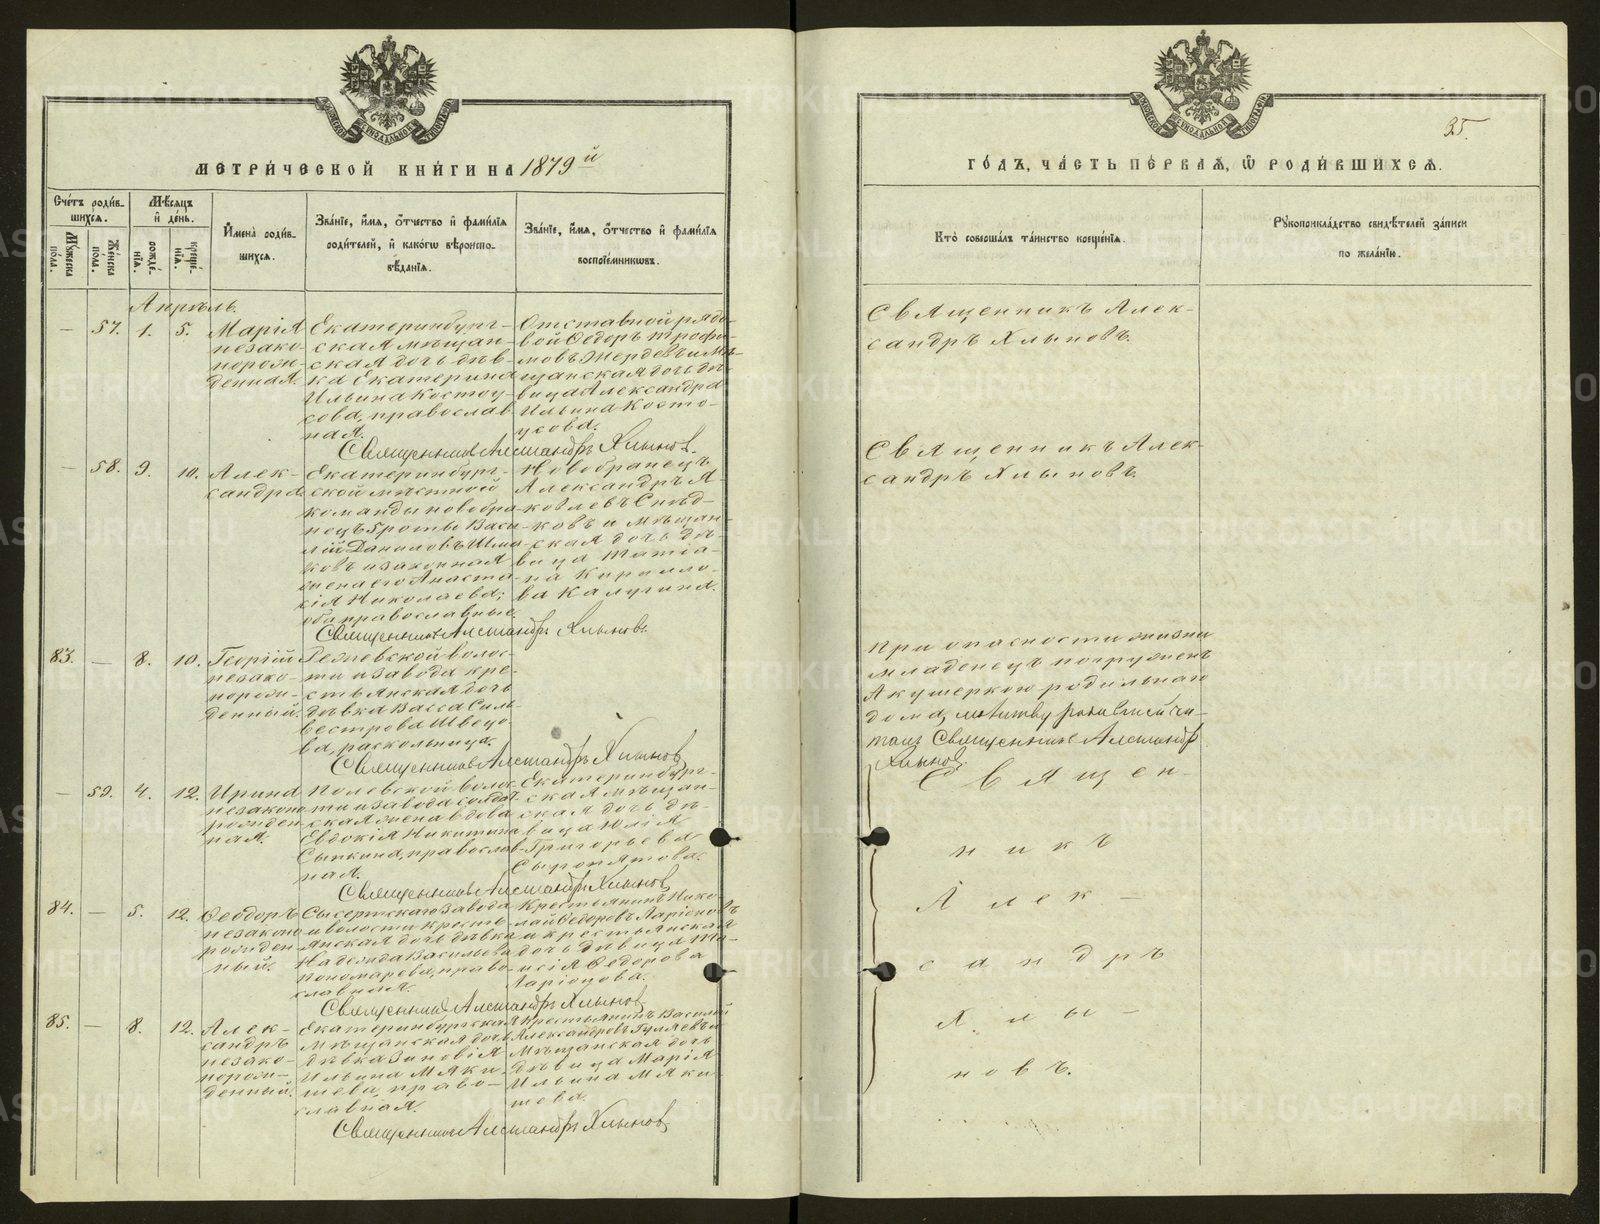 МЕТРИ́ЧЕСКОЙ КНИ́ГИ НА 1879й
Сче́тъ роди́в-
шихся.
Мѣ́сяцъ
и҆ де́нь.
Мꙋжеска
по́ла.
Же́нска
по́ла.
рожде́-
нїѧ.
креще́-
нїѧ.
И҆мена̀ роди́в-
шихсѧ.
Зва́нїе, и҆́мѧ, ѻ҆́тчество и҆ фамѝлїѧ
роди́телей, и҆ како́гѡ вѣроиспо-
вѣ́данїѧ.
Зва́нїе, и҆́мѧ, ѻ҆́тчество и҆ фамѝлїѧ
воспрїе́мникѡвъ.
Апрѣль.
— 57. 1. 5.
Марія
незако-
норож-
денная.
Екатеринбург-
ская мѣщан-
ская дочь дѣв-
ка Екатерина
Ильина Костоу-
сова, православ
ная.
Отставной рядо-
вой Ѳедоръ Трофи-
мовъ Жердевъ и мѣ-
щанская дочь дѣ-
вица Александра
Ильина Косто-
усова.
Священникъ Александръ Хлыновъ.
— 58. 9. 10.
Алек-
сандра
Екатеринбург-
ской мѣстной
команды новобра-
нецъ роты Васи-
лій Даниловъ
ковъ и законная
жена его Анаста-
сія Николаева;
оба православные.
Новобранецъ
Александръ Я-
ковлевъ
ковъ и мѣщан-
ская дочь дѣ-
вица Татіа-
на Кирилло-
ва Калугина.
Священникъ Александръ Хлыновъ.
83. — 8. 10.
Георгій
незако-
норож-
денный.
Режевской волос-
ти и завода кре-
стьянская дочь
дѣвка Васса Силь-
вестрова Швецо-
ва, раскольница.
Священникъ Александръ Хлыновъ
— 59. 4. 12.
Ирина
незаконо
рожден
ная.
Полевской волос
ти и завода солдат
ская жена вдова
Евдокія Никитина
Сыпкина, православ
ная.
Екатеринбург-
ская мѣщан-
ская дочь дѣ-
вица Юлія
Григорьева
Сыропятова.
Священникъ Александръ Хлыновъ
84. — 5. 12.
Ѳеодоръ
незаконо
рожден
ный.
Сысертскаго завода
и волости кресть-
янская дочь дѣвка
Надежда Васильева
Пономарева, право-
славная.
Крестьянинъ Нико-
лай Ѳедоровъ Ларіоновъ
и крестьянская
дочь дѣвица Та-
исія Ѳедорова
Ларіонова.
Священникъ Александръ Хлыновъ
85. — 8. 12.
Алек-
сандръ
незако-
норож-
денный.
Екатеринбургская
мѣщанская дочь
дѣвка Зиновія
Ильина Мяки-
шева, право-
славная.
Крестьянинъ Василій
Александровъ Гуляевъ и
мѣщанская дочь
дѣвица Марія
Ильина Мяки-
шева.
Священникъ Александръ Хлыновъ
35.
ГО́ДЪ, ЧА́СТЬ ПЕ́РВАѦ, Ѡ҆ РОДИ́ВШИХСѦ.
Кто̀ соверша́лъ та́инство креще́нїѧ.
Рꙋкоприкла́дство свидѣ́телей за́писи
по жела́нїю.
Священникъ Алек-
сандръ Хлыновъ.
Священникъ Алек-
сандръ Хлыновъ.
При опасности жизни
младенецъ погруженъ
Акушеркою родильнаго
дома, молитву родившей чи-
талъ Священникъ Александръ
Хлыновъ.
Священ-
никъ
Алек-
сандръ
Хлы-
новъ.
METRIKI.GASO-URAL.RU